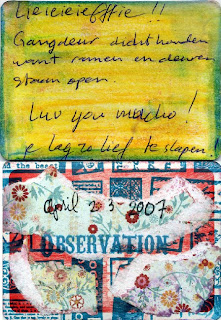 Lieieieiefffie !!
Gangdeur dicht houden
want ramen en deuren
staan open.
Luv you mucho!
Je lag zo lief te slapen!
and the beast
April 23-2007
OBSERVATION